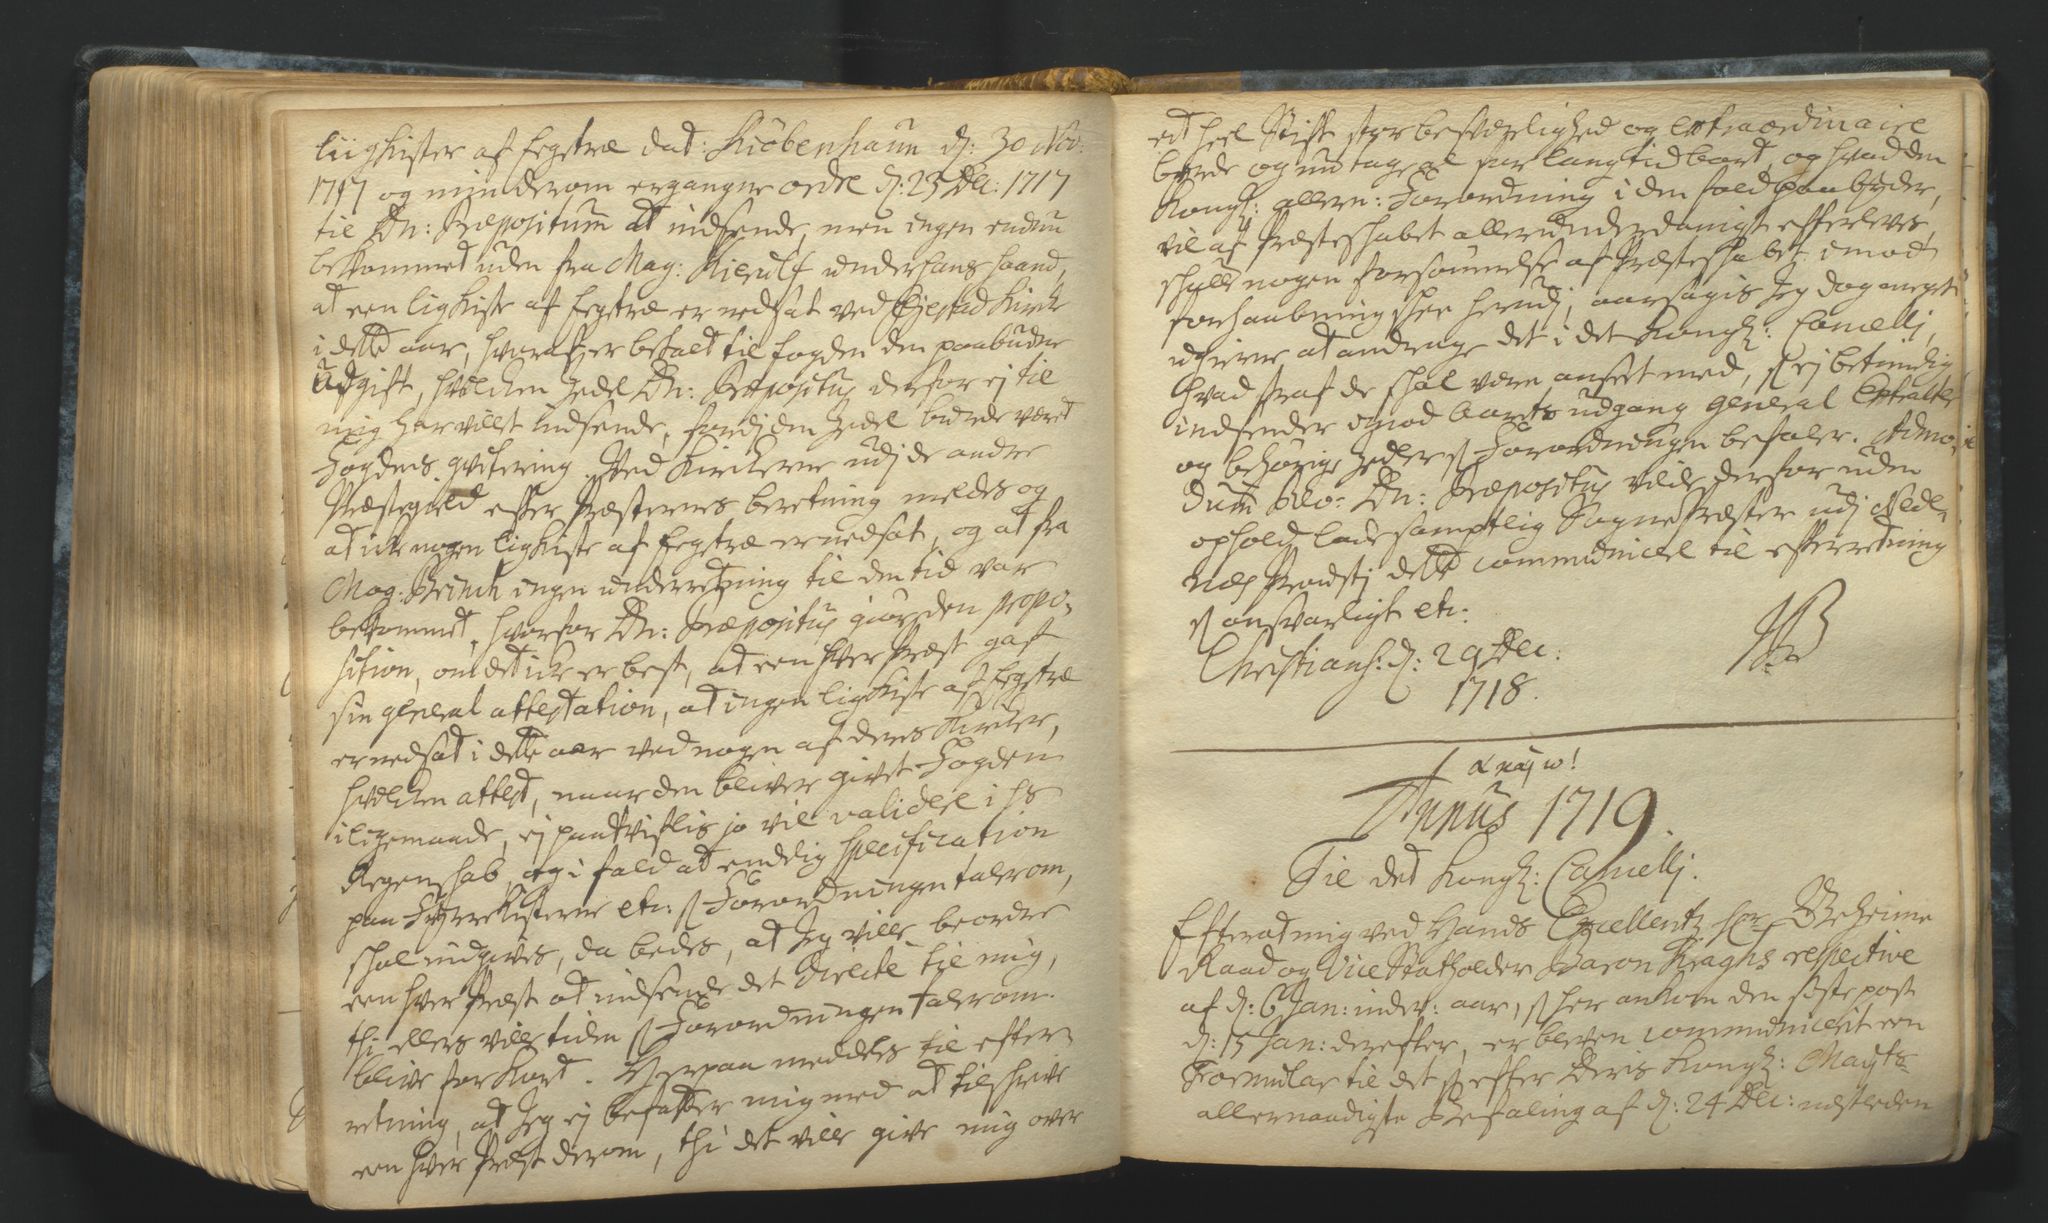 liigkister af Eegetræ dat: Kiöbenhaun d: 30 Nov:
1717 og min derom ergangne ordre d: 23 Dec: 1717
til Dn: Præpositum at indsende, men ingen endnu
bekommet uden fra Mag: Kierulf under hans haand,
at een ligkiste af Eegetræ er nedsat ved Kirke
i dette aar, hvoraf er betalt til fogden den paabudne
Udgift, hvilchen Zedel Dn: Præpositus derfor ej til
mig har villet indsende, fordi den Zedel burde være
Fogdens qvitering. Ved Kircherne udj de andre
Præstegield efter Præsternes beretning meldes og
at icke nogen ligkiste af Eegetræ er nedsat, og at fra
Mag: Brinch ingen underretning til den tid var
bekommet, hvorfor Dn: Præpositus giør den propo-
sition, om det icke er best, at een hver Præst gaf
sin general attestation, at ingen ligkiste af Eegetræ
er nedsat i dette aar ved nogen af deres Kircker,
hvilchen attest, naar den bliver givet Fogden
iligemaade, ej jo vil validere i hs
Regenskab, og i fald at endelig specification
paa Fyrrekisterne etc: Forordningen taler om,
skal indgives, da bedes, at Jeg ville beordre
een hver Præst at indsende det directe til mig,
thi ellers ville tiden Forordningen taler om
blive for kort. Herpaa meddeles til efter-
retning, at Jeg ej befatter mig med at tilskrive
een hver Præst derom, thi det ville give mig over
et heel Stift stor besværlighed og extraordinaire
byrde og undtage al for lang tid bort, og hvad den
Kongl: allern: Forordning i den fald paabyder,
vil af Præsteskabet allerunderdanigst efterleves,
skulle nogen forsømmelse af Præsteskabet imod
forhaabning skee herudj, aarsagis Jeg dog meget
ugierne at andrage det i det Kongl: Cancellj,
hvad straf de skal være anseet med, ej betimelig
indsender imod Aarets udgang General Extracter
og behørige Zedler Forordningen befaler. Admo-
dum Rev: Dn: Præpositus vilde derfor uden
ophold lade samptlig Sognepræster udj Nede-
næs Provstj dette communicere til efterretning
ansvarligt etc:
Christians: d: 29 Dec:
1718.
Annus 1719.
Til det Kongl: Cancellj.
Efter at mig ved Hands Excellentz Hr Geheime
Raad og Vice Statholder Baron Kraghs respective
af d: 6 Jan: inder: aar, her ankom den siste post
d: 15 Jan: derefter, er bleven communicerit een
Formular til det efter Deris Kongl: Mayts
allernaadigste Befaling af d: 24 Dec: nestleden